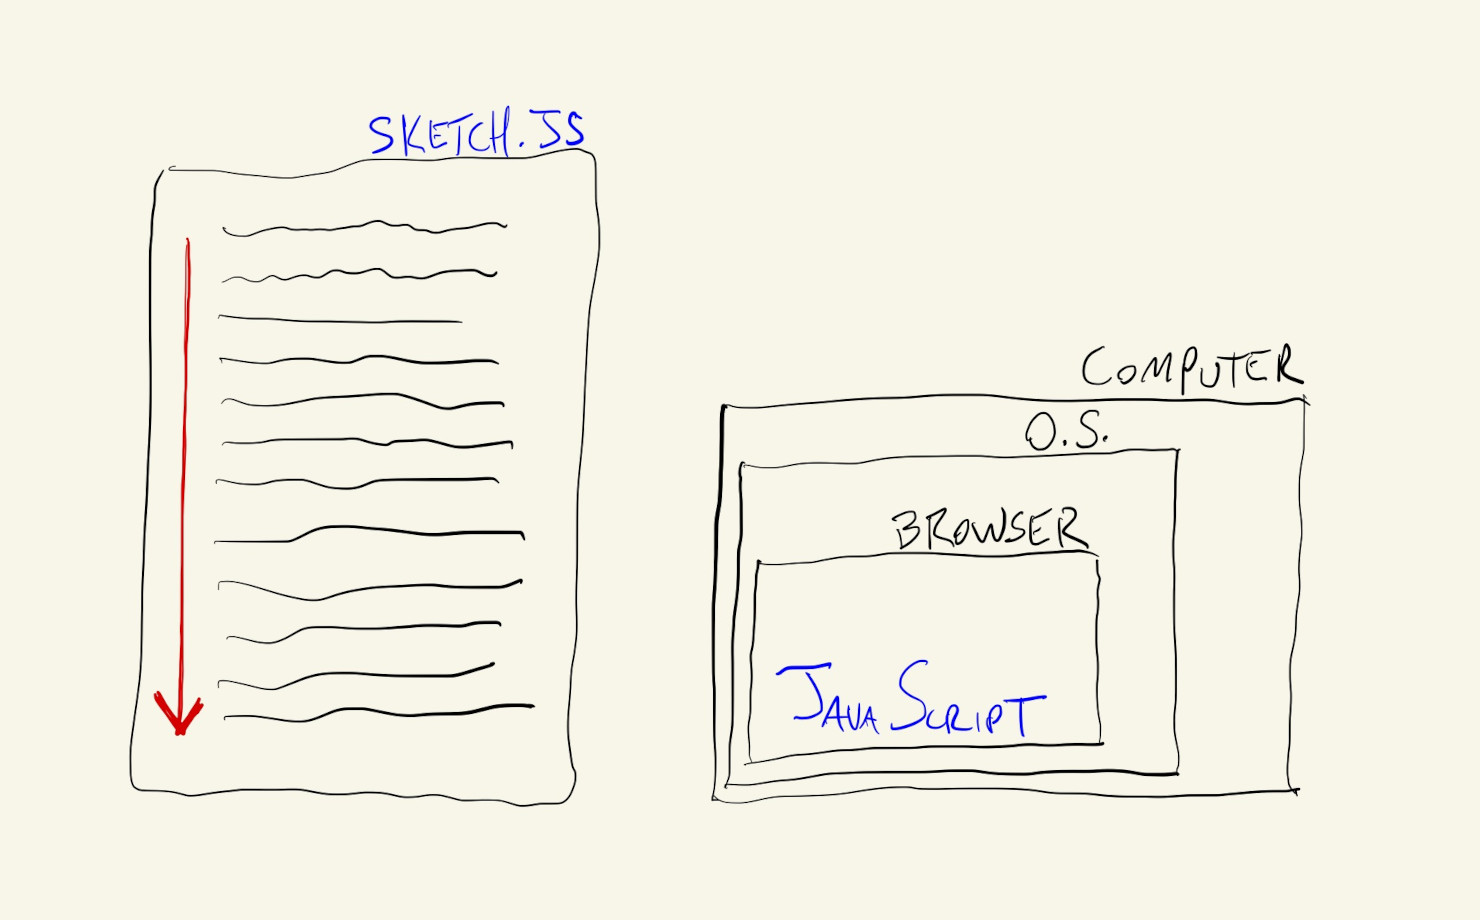 SKETCH.JS
COMPUTER
O.S.
BROWSER
JAVASCRIPT